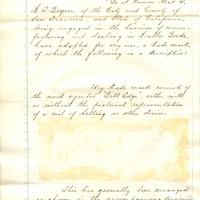 Be it known that I,
of the City and County of
San Francisco, and State of California,
being engaged in the business of manu-
facturing and dealing in Goods,
have adopted for my use, a Trade mark,
of which the following is a description:
My Trade mark consists of
the word symbol "Gilt Edge", either with
or without the pictorial representation
of a roll of batting or other device.
This has generally been arranged
as shown in the